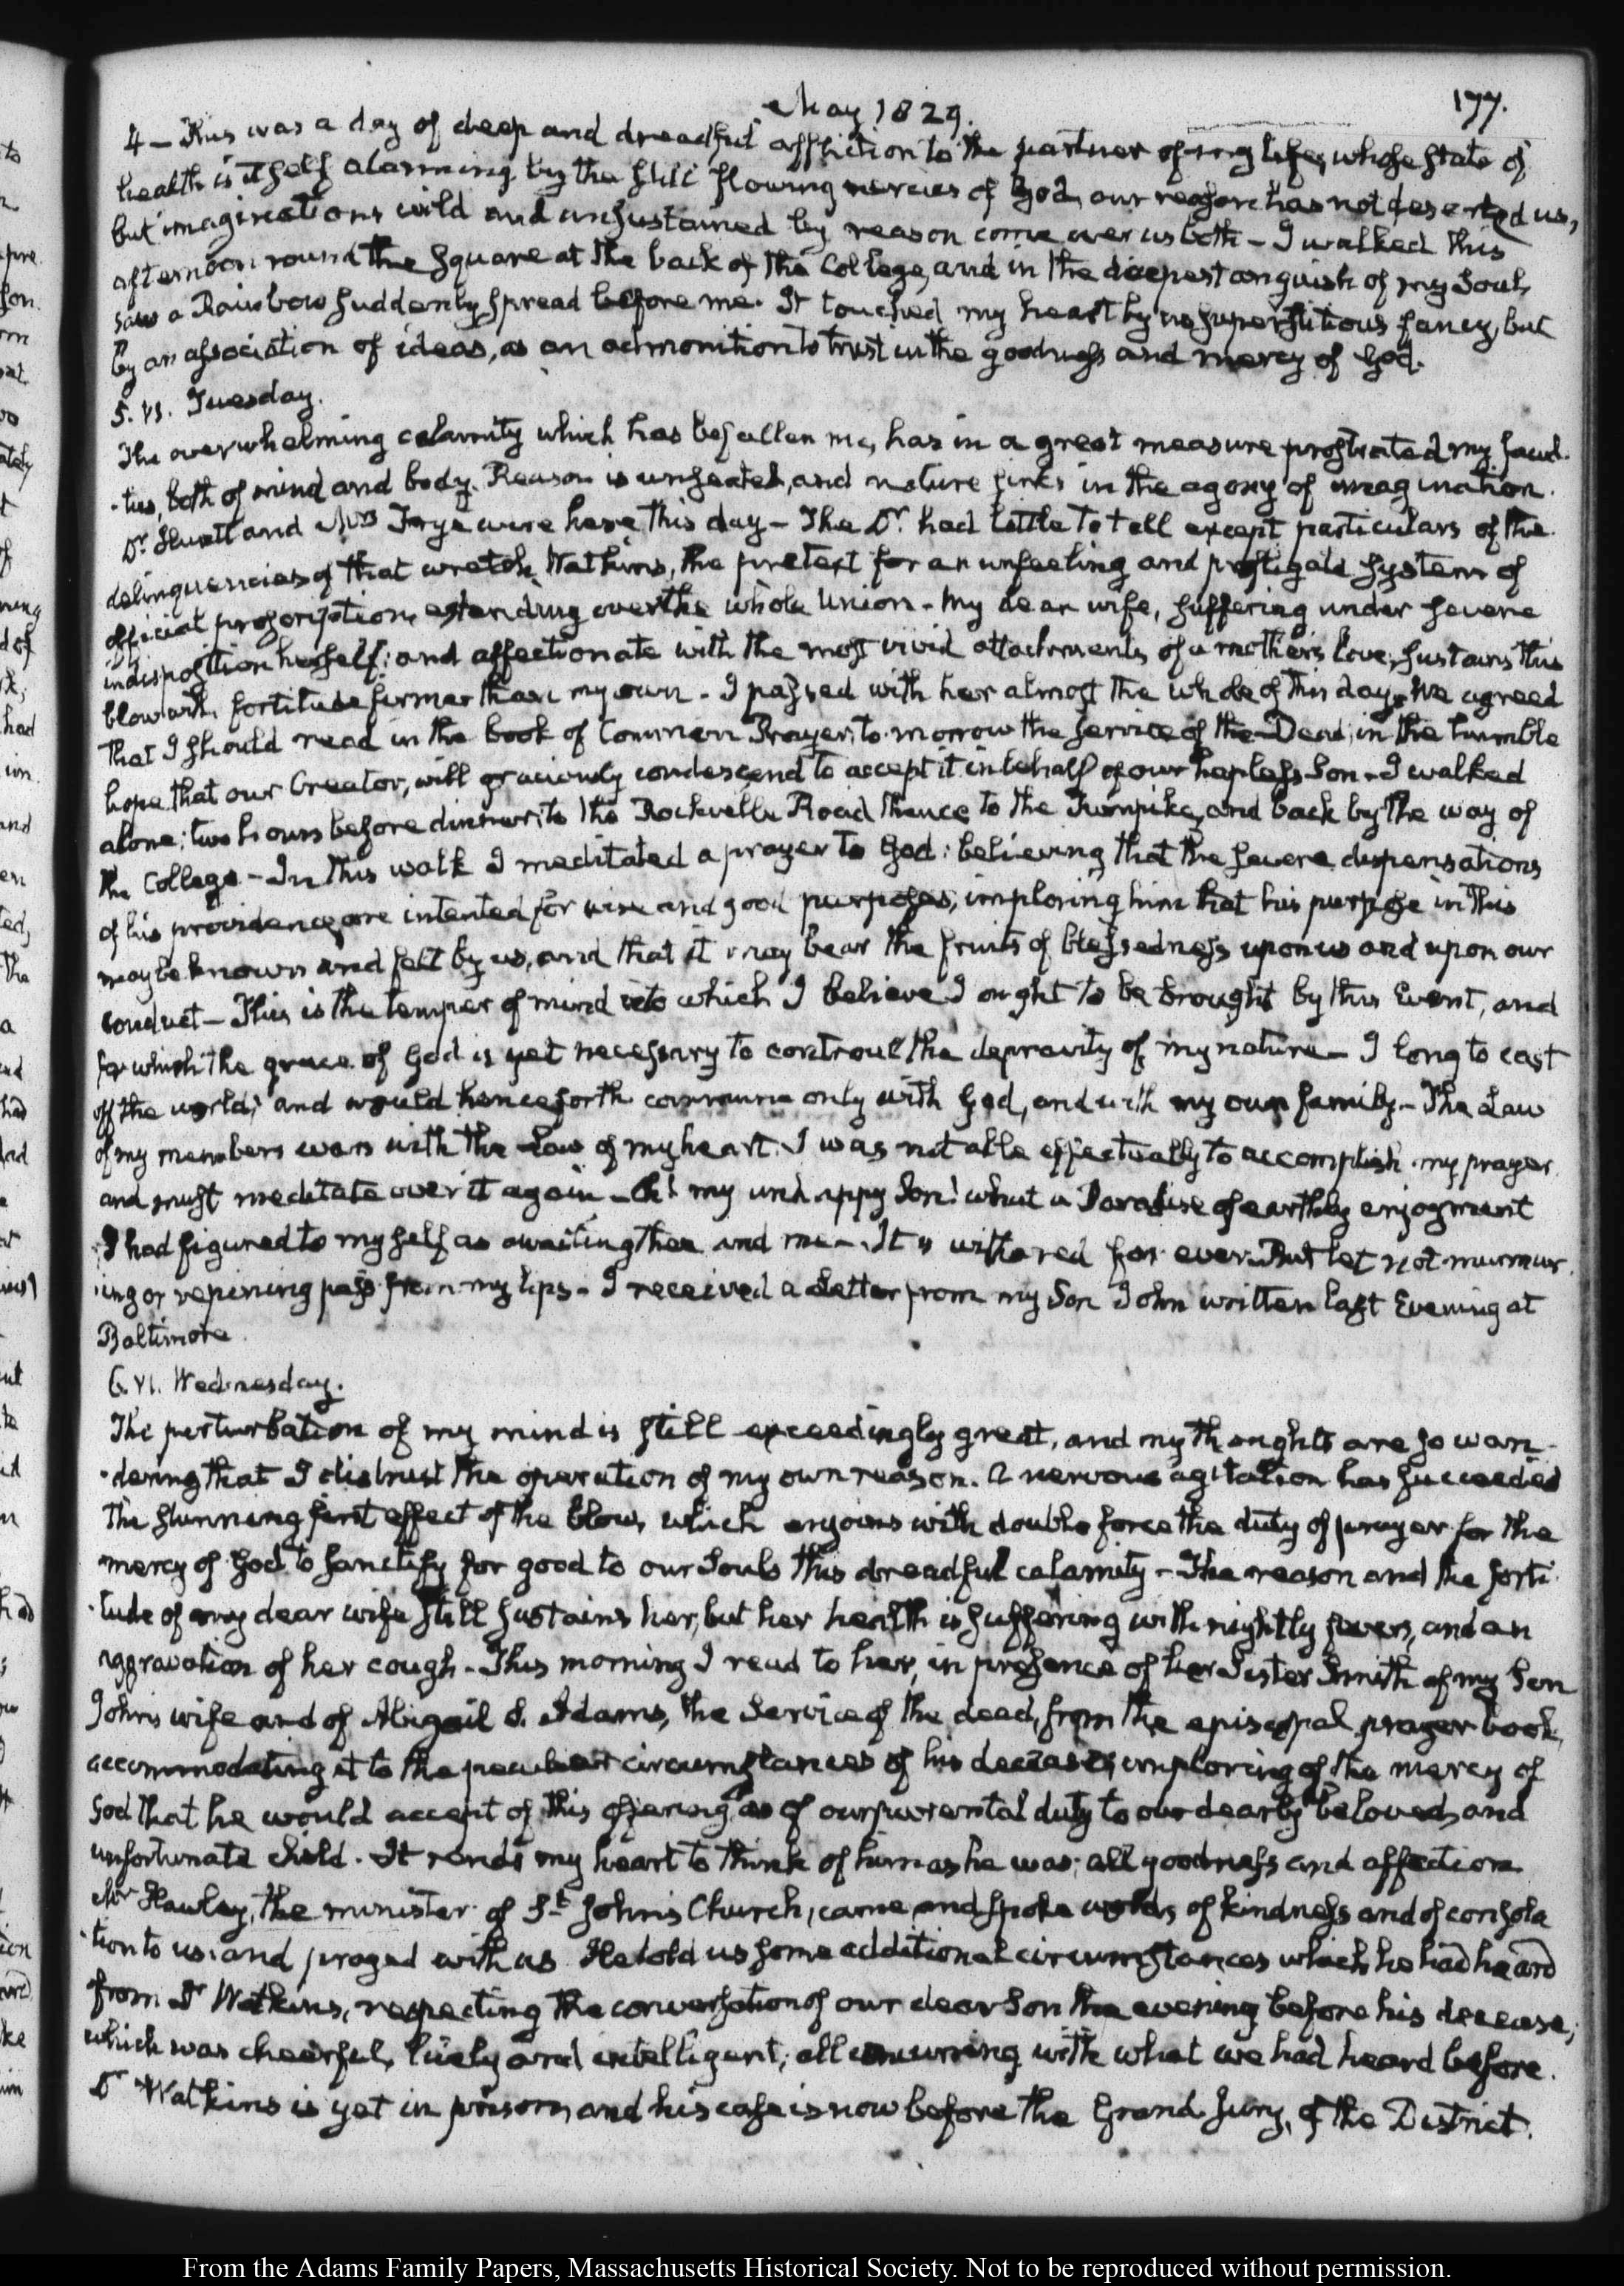 May 1829.
177.
4 — This was a day of deep and dreadful affliction to the partner of my life, whose state of
health is itself alarming by the still flowing mercies of God, our reason has not deserted us,
but imaginations wild and unsustained by reason come over us both — I walked this
afternoon round the Square at the back of the College, and in the deepest anguish of my Soul,
saw a Rainbow suddenly spread before me. It touched my heart by no superstitious fancy, but
by an association of ideas, as an admonition to trust in the goodness and mercy of God.
5. VI. Tuesday.
The overwhelming calamity which has befallen me, has in a great measure prostrated my facul-
-ties, both of mind and body. Reason is unseated, and nature sinks in the agony of imagination.
Dr. Huntt and Mrs Frye were here this day — The Dr. had little to tell except particulars of the
delinquencies of that wretch Watkins, the pretext for an unfeeling and profligate system of
official proscription, extending over the whole Union — My dear wife, suffering under severe
indisposition herself; and affectionate with the most vivid attachments of a mother's love, sustains this
blow with fortitude firmer than my own — I passed with her almost the whole of this day. We agreed
that I should read in the book of Common Prayer, to-morrow the service of the Dead, in the humble
hope that our Creator, will graciously condescend to accept it in behalf of our hapless Son — I walked
alone; two hours before dinner, to the Rockville Road thence to the Turnpike, and back by the way of
the College — In this walk I meditated a prayer to God: believing that the severe dispensations
of his providence, are intented for wise and good purposes, imploring him that his purpose in this
may be known and felt by us, and that it may bear the fruits of blessedness upon us and upon our
conduct — This is the temper of mind into which I believe I ought to be brought by this Event, and
for which the grace of God is yet necessary to controul the depravity of my nature — I long to cast
off the world; and would henceforth commune only with God, and with my own family — The Law
of my members wars with the Law of my heart. I was not able effectually to accomplish my prayer
and must meditate over it again — Oh! my unhappy Son! what a Paradise of earthly enjoyment
I had figured to myself as awaiting thee and me — It is withered for ever. But let not murmur-
-ing or repining pass from my lips — I received a Letter from my Son John written last Evening at
Baltimore.
6. VI. Wednesday.
The perturbation of my mind is still exceedingly great, and my thoughts are so wan-
-dering that I distrust the operation of my own reason. A nervous agitation has succeeded
the stunning first effect of the blow, which enjoins with double force the duty of prayer for the
mercy of God to sanctify for good to our Souls this dreadful calamity — The reason and the forti-
-tude of my dear wife still sustains her, but her health is suffering with nightly fevers, and an
aggravation of her cough — This morning I read to her, in presence of her Sister Smith of my Son
John's wife and of Abigail S. Adams, the Service of the dead, from the episcopal prayer book,
accommodating it to the peculiar circumstances of his decease; imploring of the mercy of
God that he would accept of this offering as of our parental duty to our dearly beloved, and
unfortunate child. It rends my heart to think of him as he was; all goodness and affection
Mr Hawley, the minister of St. John's Church, came and spoke words of kindness and of consola-
-tion to us: and prayed with us. He told us some additional circumstances which he had heard
from Dr Watkins, respecting the conversation of our dear Son the evening before his decease;
which was cheerful, lively and intelligent; all concurring with what we had heard before.
Dr Watkins is yet in prison, and his case is now before the Grand Jury, of the District.
From the Adams Family Papers, Massachusetts Historical Society. Not to be reproduced without permission.